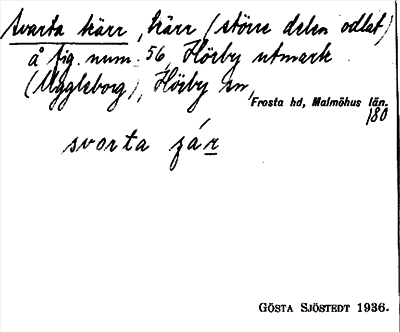 Svarta kärr, kärr (större delen odlat)
å fig. num. 56, Hörby utmark
(Uggleborg), Hörby sn,
Frosta hd, Malmöhus län.
180
svorta ɟá r
GÖSTA SJÖSTEDT 1936.